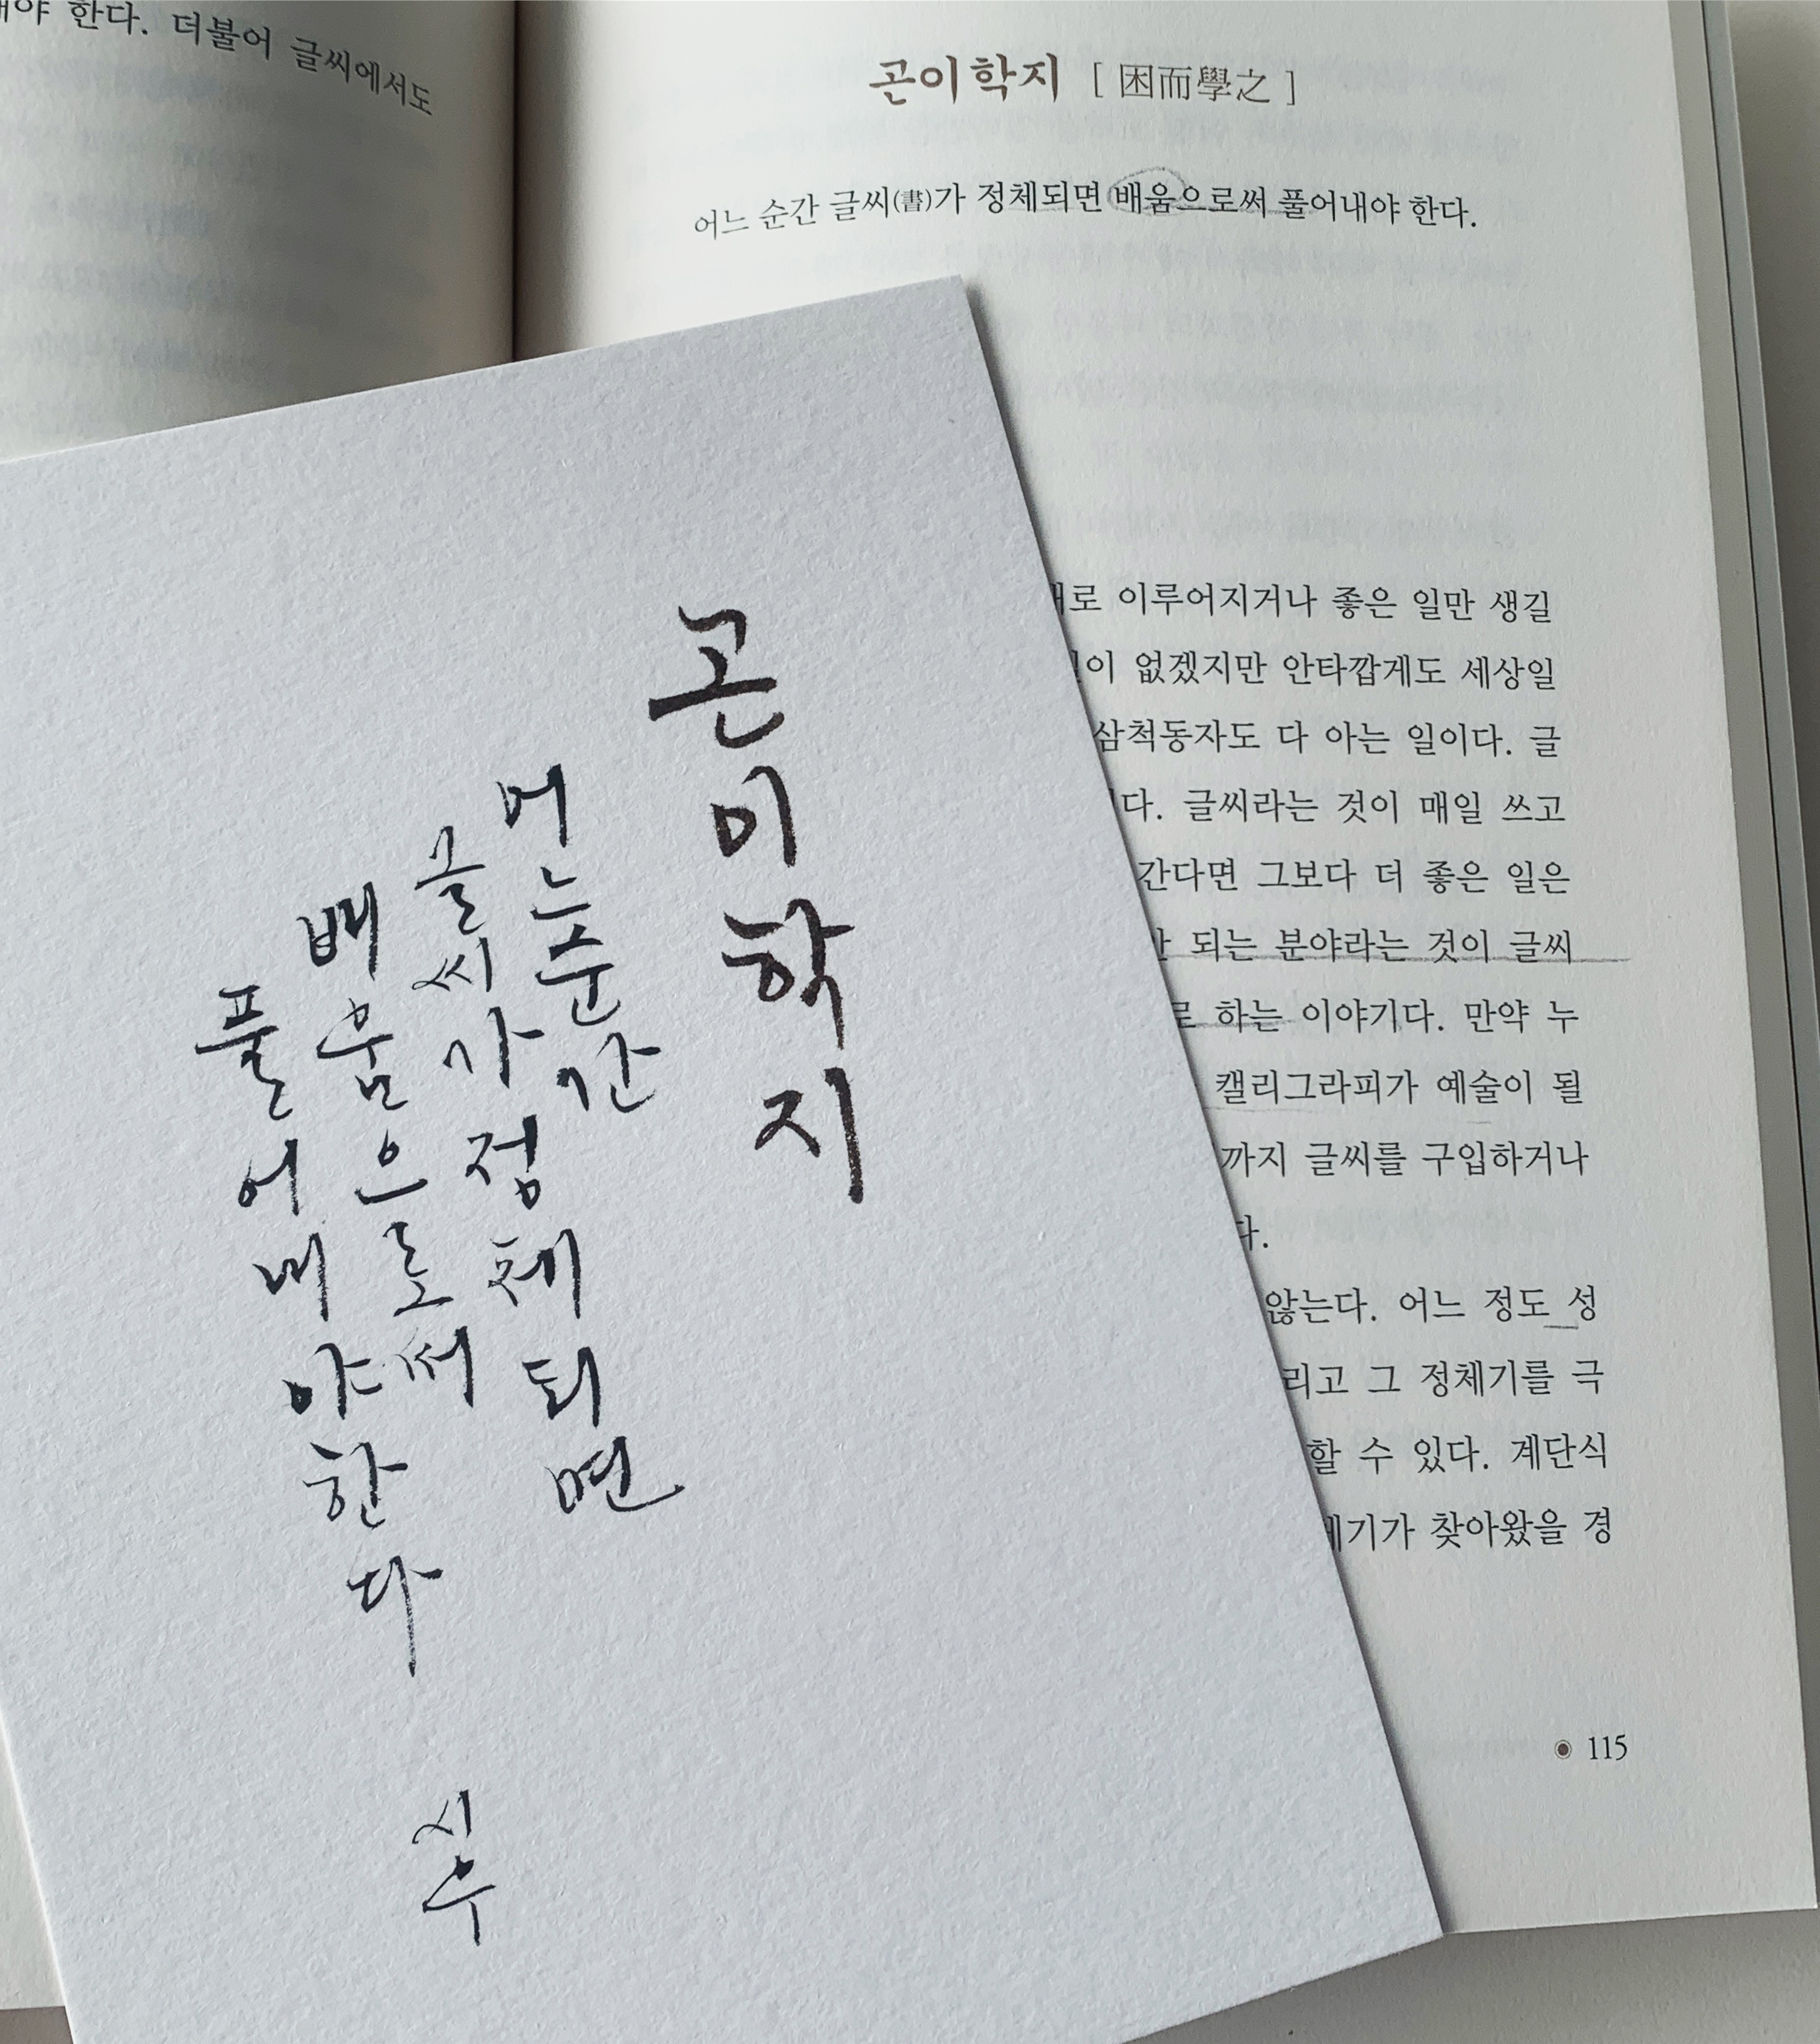 한다. 더불어 글씨에서도
곤이학지 [ 困而學之 ]
어느 순간 글씨(書)가 정체되면 배움으로써 풀어내야 한다.
이루어지거나 좋은 일만 생길
없겠지만 안타깝게도 세상일
삼척동자도 다 아는 일이다. 글
글씨라는 것이 매일 쓰고
간다면 그보다 더 좋은 일은
되는 분야라는 것이 글씨
하는 이야기다. 만약 누
캘리그라피가 예술이 될
까지 글씨를 구입하거나
다.
않는다. 어느 정도 성
그 정체기를 극
할 수 있다. 계단식
찾아왔을 경
115
곤이학지
어느순간
글씨가정체되면
배움으로써
풀어내야한다
시우